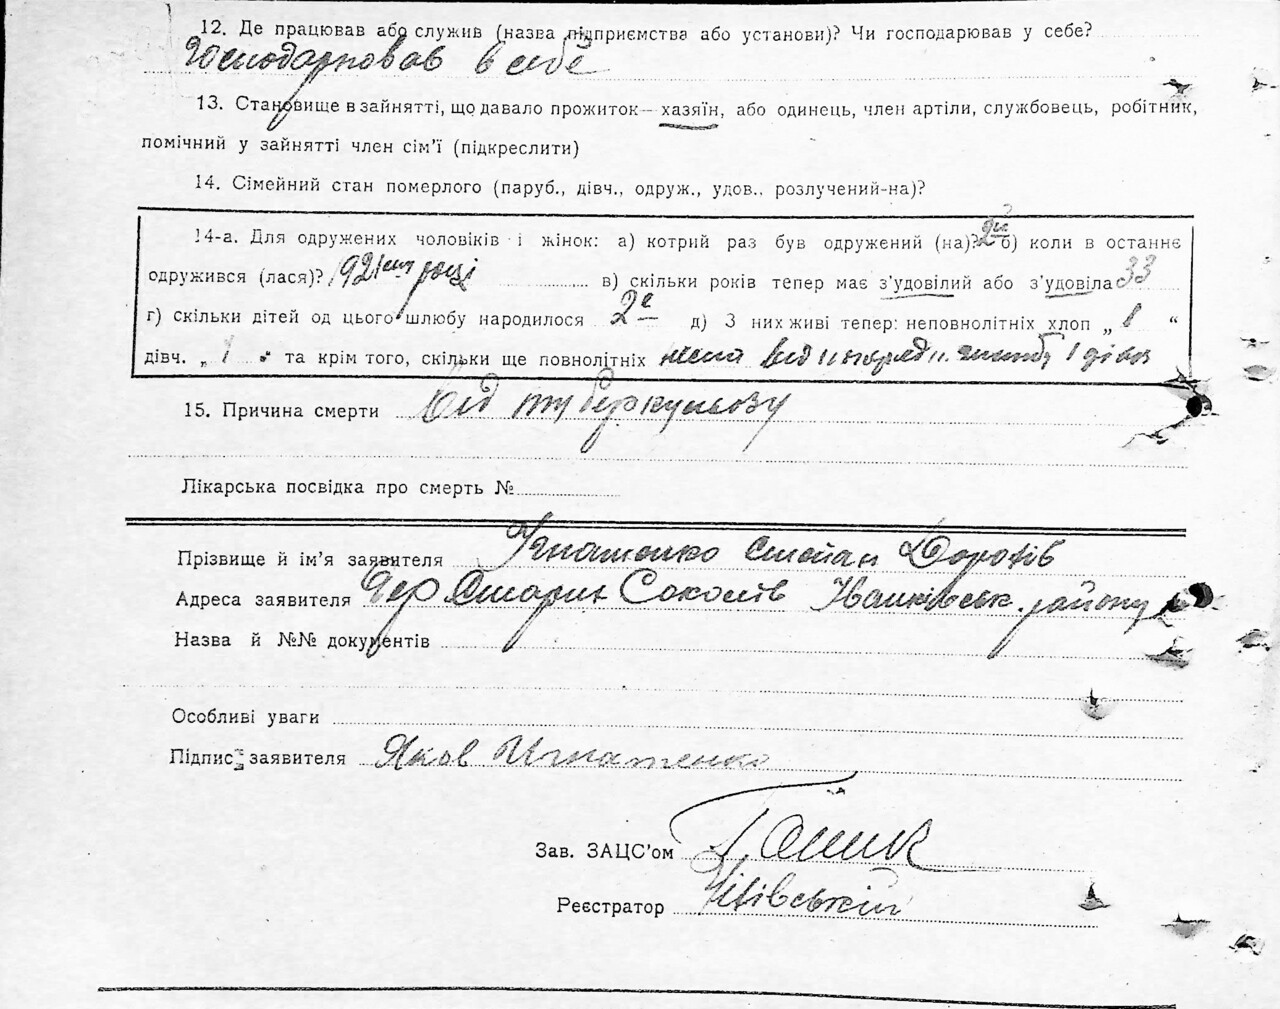 12. Де працював або служив (назва підприємства або установи)? Чи господарював у себе?
Господарював в себе
13. Становище в зайнятті, що давало прожиток — хазяїн, або одинець, член артіли, службовець, робітник,
помічний у зайнятті член сім'ї (підкреслити)
14. Сімейний стан померлого (паруб., дівч., одруж., удов., розлучений-на)?
14-а. Для одружених чоловіків і жінок: а) котрий раз був одружений (на)? 2ий б) коли в останнє
одружився (лася)? 1921 році в) скільки років тепер має з'удовілий або з'удовіла 33
г) скільки дітей од цього шлюбу народилося 2е д) З них живі тепер: неповнолітніх хлоп „ 1 “
дівч. „ 1 “ та крім того, скільки ще повнолітніх від шлюбу 1
15. Причина смерти від туберкульозу
Лікарська посвідка про смерть №
Прізвище й ім'я заявителя Ігнатенко Степан
Адреса заявителя Старий Соколів Іванківськ. району
Назва й №№ документів
Особливі уваги
Підпис заявителя Яков Игнатенко
Зав. ЗАЦС'ом
Реєстратор